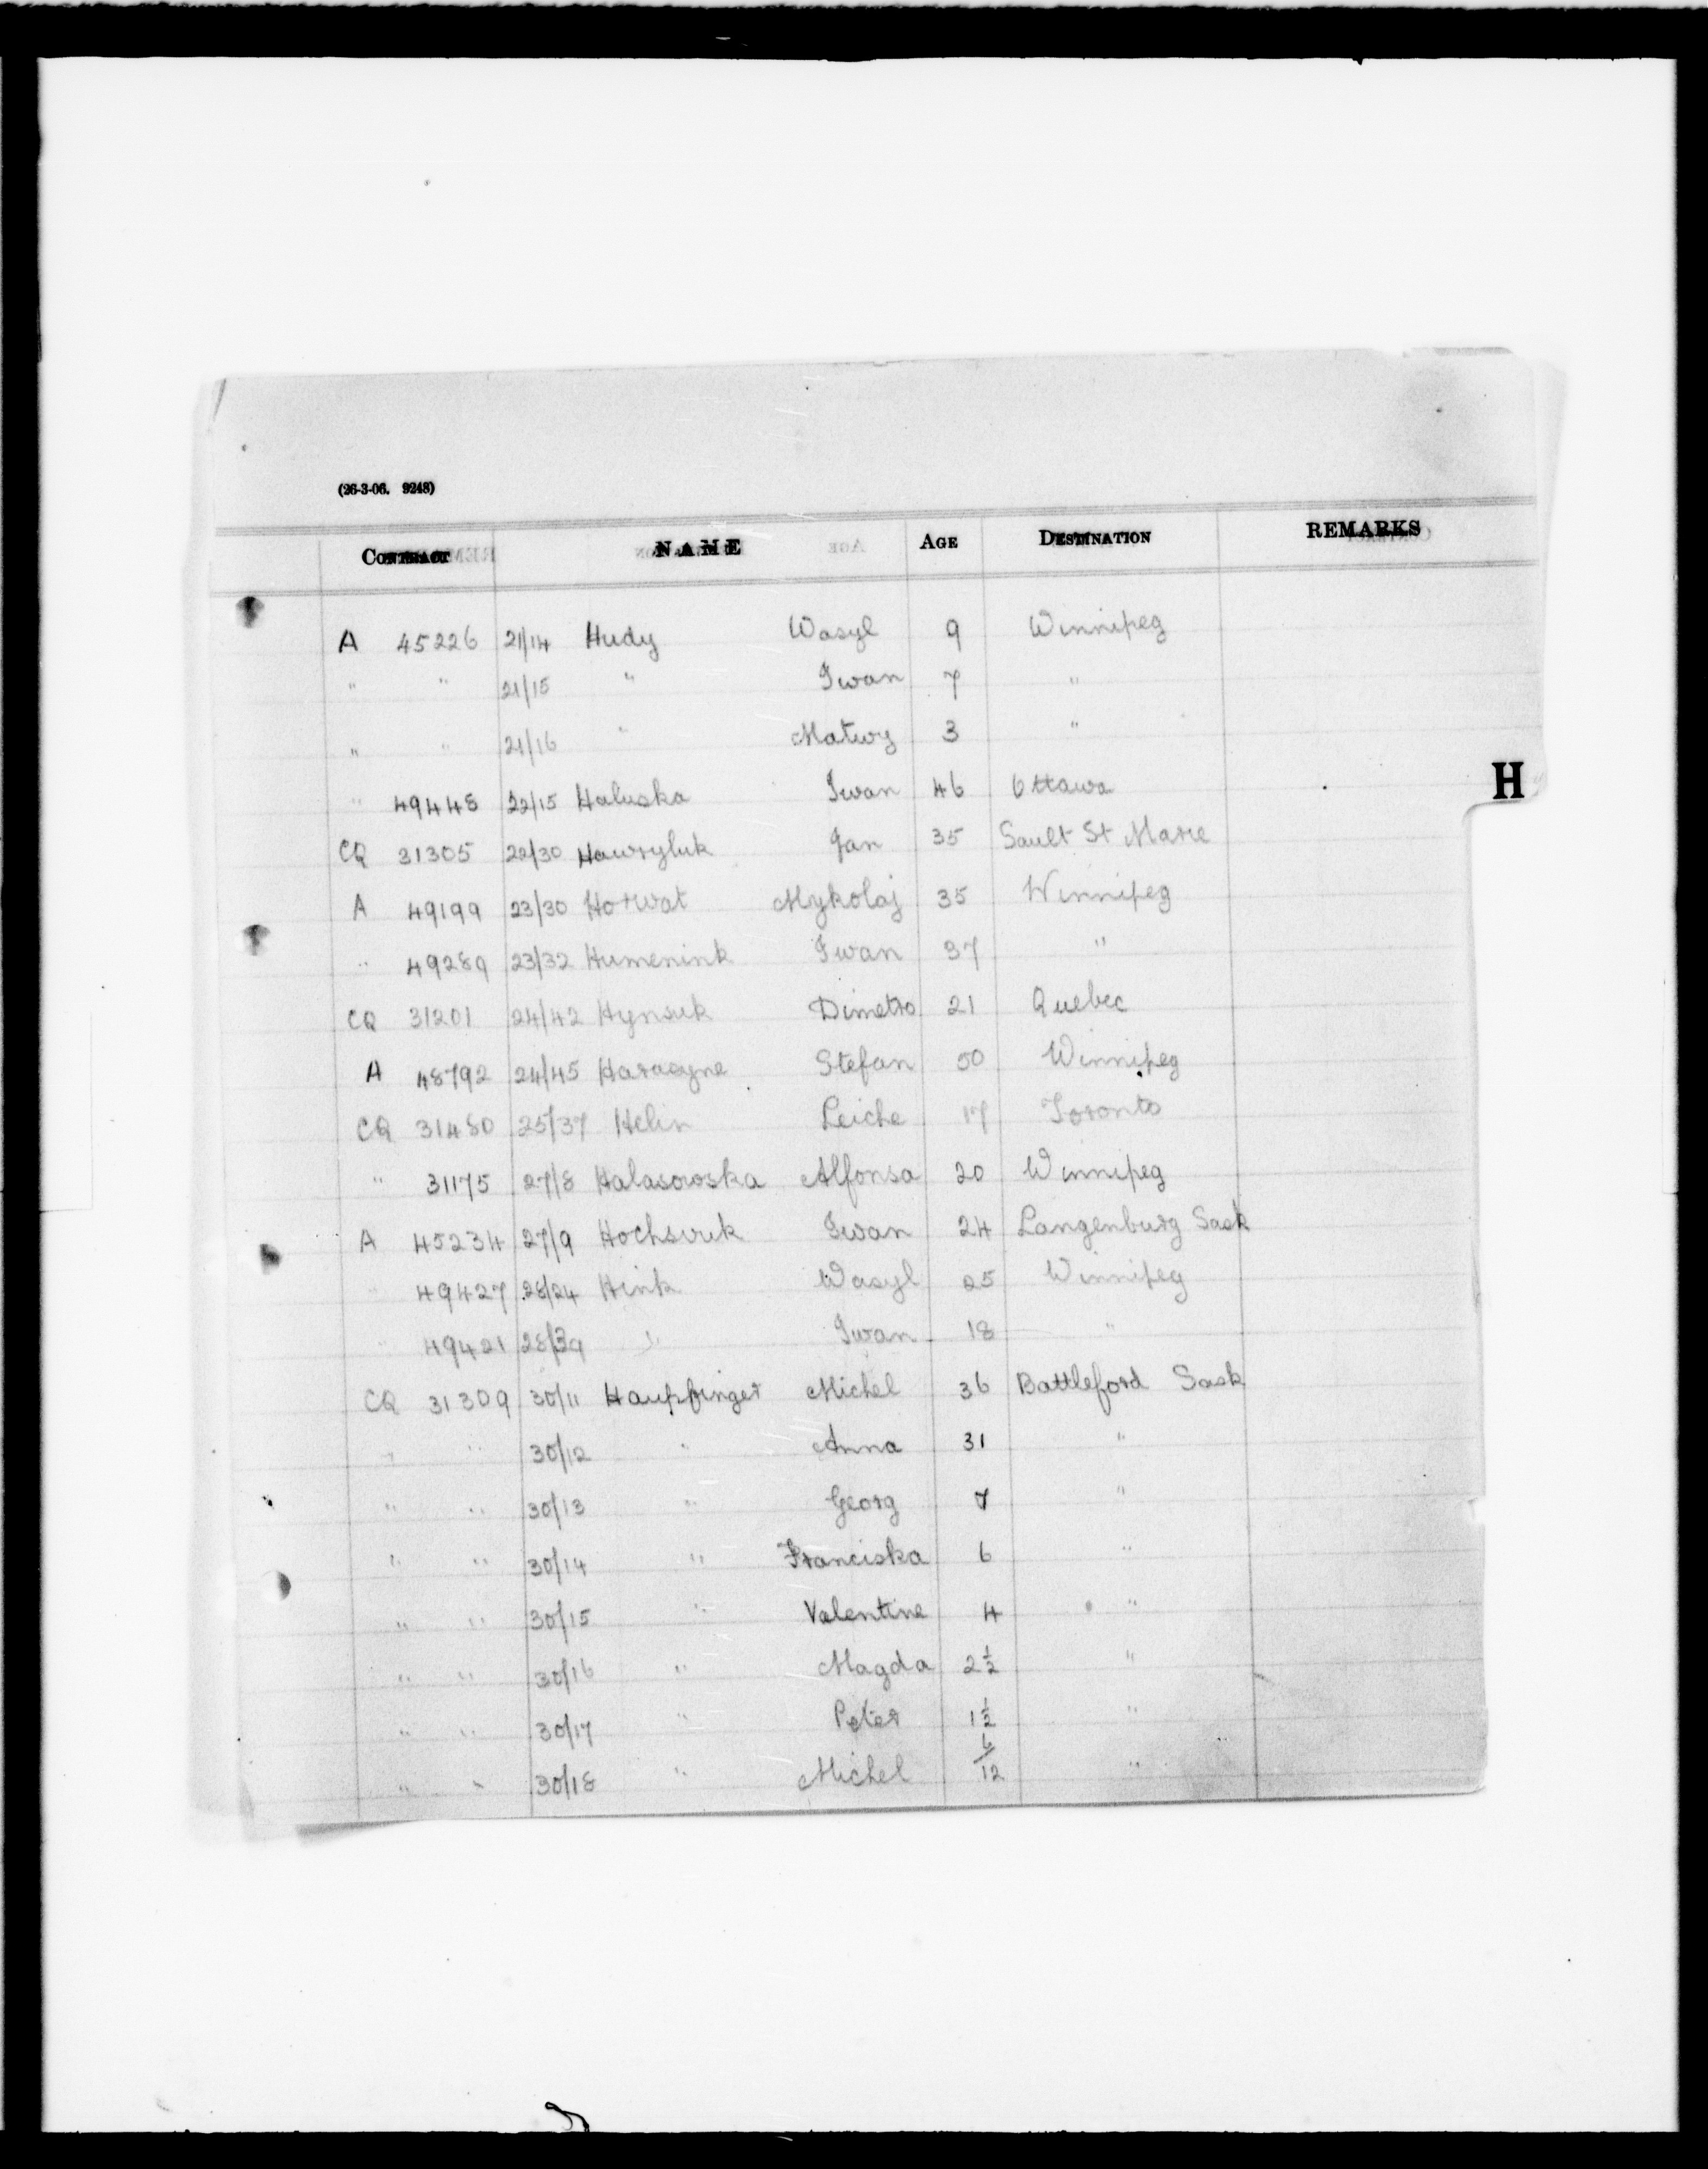 (26-3-06. 9248)
CONTRACT NAME AGE DESTINATION REMARKS
A 45226 21/14 Hudy Wasyl 9 Winnipeg
" " 21/15 " Iwan 7 "
" " 21/16 " Matwy 3 "
H
" 49448 22/15 Haluska Iwan 46 Ottawa
CQ 31305 22/30 Hawryluk Jan 35 Sault St Marie
A 49199 23/30 Horwat Mykolaj 35 Winnipeg
" 49289 23/32 Humenink Iwan 37 "
CQ 31201 24/42 Hynsuk Dimetro 21 Quebec
A 48792 24/45 Harasyne Stefan 50 Winnipeg
CQ 31480 25/37 Helin Leiche 17 Toronto
" 31175 27/8 Halasowska Alfonsa 20 Winnipeg
A 45234 27/9 Iwan 24 Langenburg Sask
" 49427 28/24 Hink Wasyl 25 Winnipeg
" 49421 28/39 " Iwan 18 "
CQ 31309 30/11 Haupfinger Michel 36 Battleford Sask
" " 30/12 " Anna 31 "
" " 30/13 " Georg 7 "
" " 30/14 " Franciska 6 "
" " 30/15 " Valentine 4 "
" " 30/16 " Magda 2½ "
" " 30/17 " Peter 1½ "
" " 30/18 " Michel 6/12 "